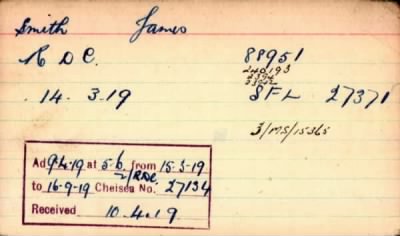 Smith James
R D C. 88951
240193
14. 3.19 SFL 27371
3/MS/15365
Ad 9-4-19 at 5/6 from 15-3-19
2/RDC
to 16-9-19 Chelsea No. 27134
Received 10.4.19